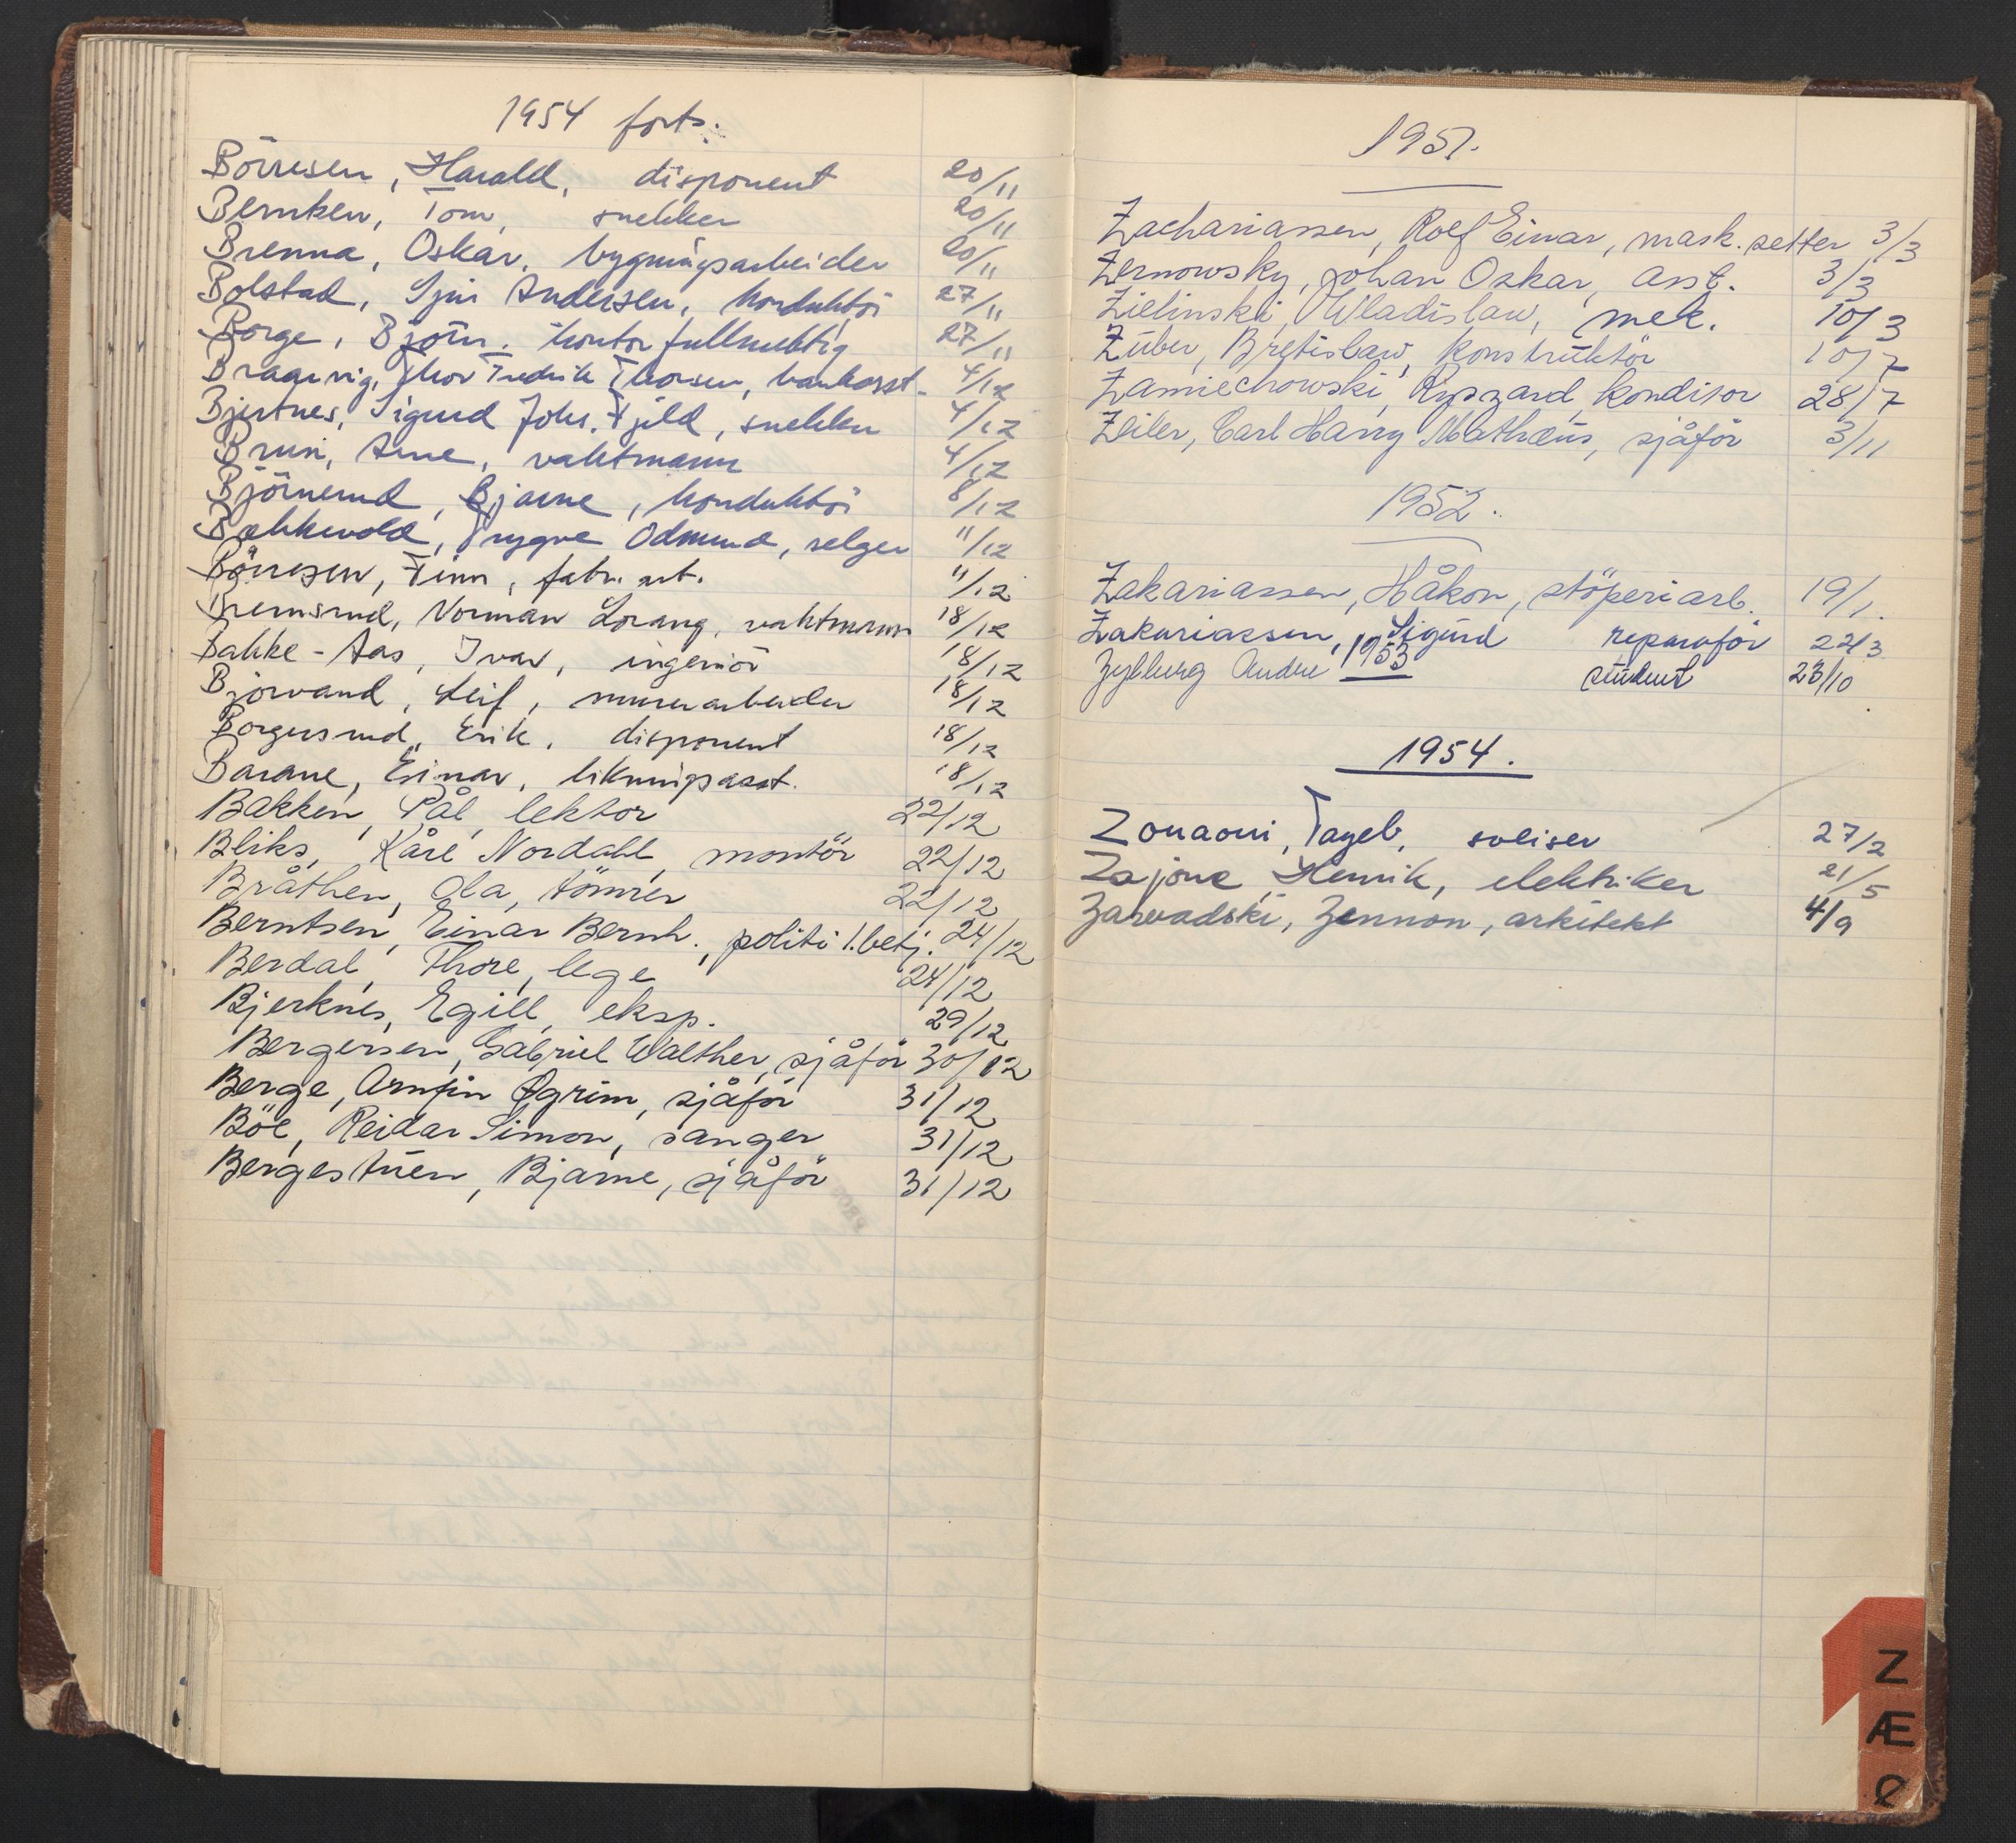 1954 forts.
Börresen, Harald, disponent 20/11
Bernken, Tom, snekker 20/11
Brenna, Oskar, bygningsarbeider 20/11
Bolstad, Andersen, konduktör 27/11
Borge, Bjørn. kontorfullmektig 27/11
Bragervig, Thor Fredrik Thorsen, bankasst. 4/12
Bjertnes, Sigurd Johs. Fjeld, snekker 4/12
Brun, Arne, vaktmann 4/12
Björnerud, Bjarne, konduktör 8/12
Bækkevold, Trygve Odmund, selger 11/12
Börresen, Finn, fabr. arb. 11/12
Bremsrud, Norman Lorang, vaktmann 18/12
Bakke-Aas, Ivar, ingeniör 18/12
Björvand, Leif, murerarbeider 18/12
Borgersrud, Erik, disponent 18/12
Barane, Einar, likningsasst. 18/12
Bakken, Pål, lektor 22/12
Bliks, Kåre Nordahl, montör 22/12
Bråthen, Ola, tömrer 22/12
Berntsen, Einar Bernh., politi 1.betj. 24/12
Berdal, Thore, lege 24/12
Bjerknes, Egill, eksp. 29/12
Bergersen, Gabriel Walther, sjåför 30/12
Berge, Arnfin Ogrim, sjåför 31/12
Böe, Reidar Simon, sanger 31/12
Bergestuen, Bjarne, sjåför 31/12
1951.
Zachariassen, Rolf Einar, mask.setter 3/3
Zernowsky, Johan Oskar, asst. 3/3
Zielinski, Wladislaw, mek. 10/3
Zuber, Bretislaw, konstruktör 10/7
Zamiechowski, Ryszard, kondisor 28/7
Zeiler, Carl Harry Mathæus, sjåför 3/11
1952.
Zakariassen, Håkon, støperiarb. 19/1.
Zakariassen, Sigurd reparatör 22/3
1953
Zylburg Andre student 23/10
1954.
Zouaoui, Tayeb, soliser 27/2
Zajonc, Henrik, elektriker 21/5
Zarwadski, Zennon, arkitekt 4/9
Z
Æ